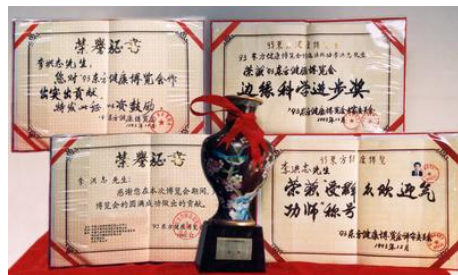 荣誉证书
李洪志先生:
您对'93东方健康博览会作
出突出贡献,
特发此证 以资鼓励。
'93东方健康博览会
荣获'93东方健康博览会
边缘科学进步奖
'93东方健康博览会
1993年12月
荣誉证书
李洪志先生:
感谢您在本次博览会期间,
博览会的圆满成功做出的贡献。
'93东方健康博览会
'93东方健康博览
李洪志先生
荣获受群众欢迎气
功师称号
'93东方健康博览会评审委员会
1993年12月